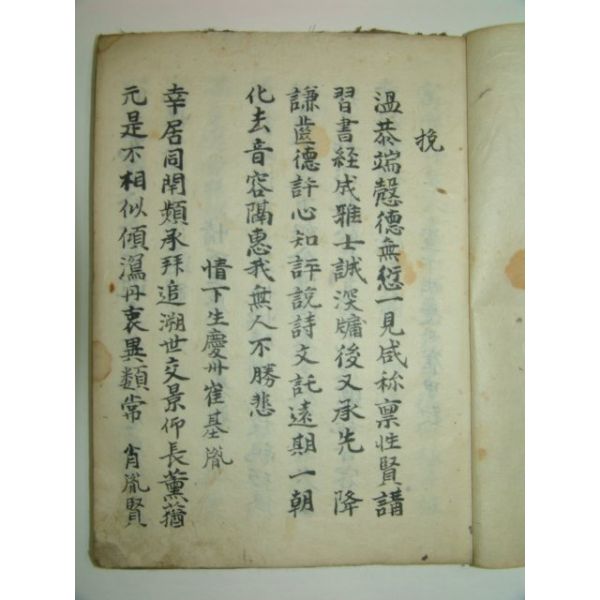 挽
溫恭端慤德無愆一見咸称禀性賢講
習書経成雅士誠深牖後又承先 降
謙齒德許心知評說詩文託遠期一朝
化去音容隔惠我無人不勝悲
情下生慶州崔基胤
幸居同閈頻承拜追溯世交景仰長薰蕕
元是不相似傾瀉丹衷異類常 肖胤賢